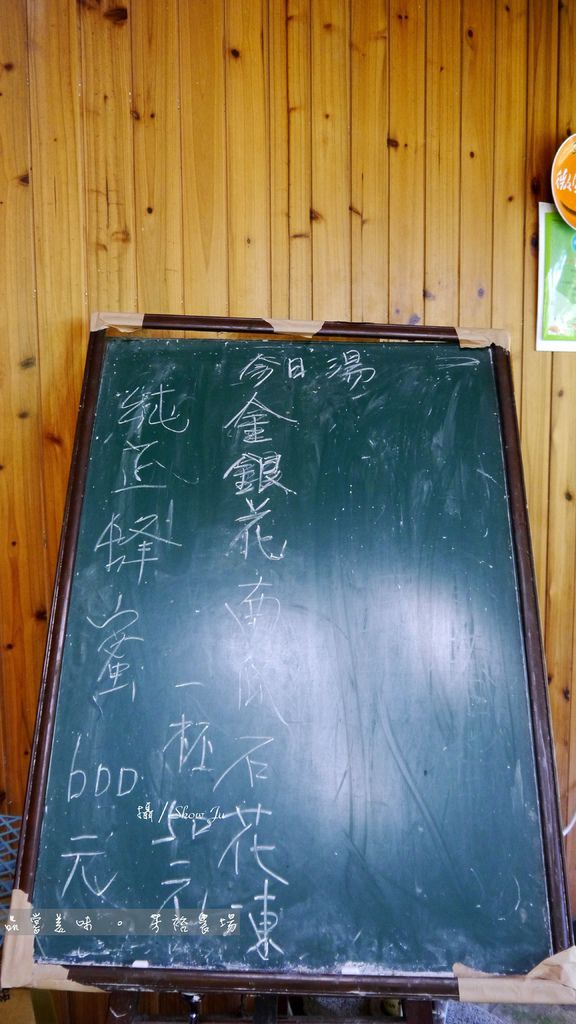 今日湯
金銀花南瓜石花凍
一杯50元
純正蜂蜜600元
攝/Show Ju
品嘗美味。芳裕農場